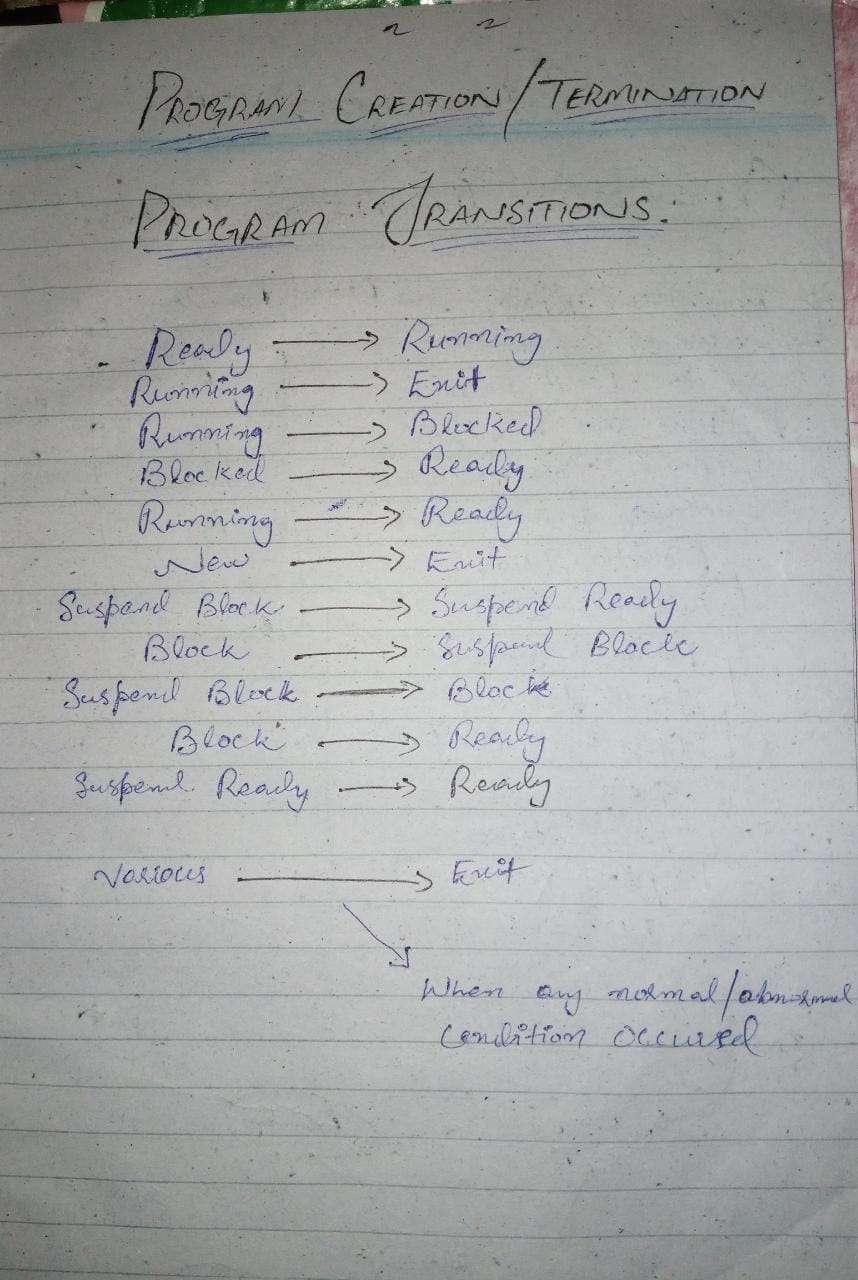 PROGRAM CREATION/TERMINATION
PROGRAM TRANSITIONS.
Ready → Running
Running → Exit
Running → Blocked
Blocked → Ready
Running → Ready
New → Exit
Suspend Block → Suspend Ready
Block → Suspend Block
Suspend Block → Block
Block → Ready
Suspend Ready → Ready
Various → Exit
When any normal/abnormal
Condition Occured